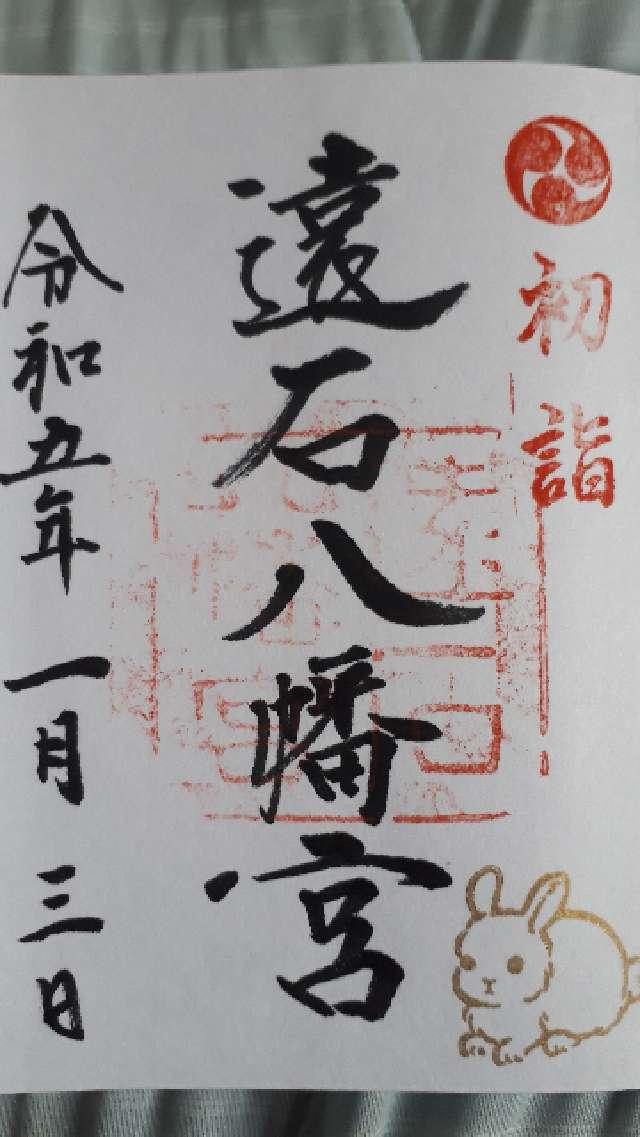 初詣
遠石八幡宮
令和五年一月三日